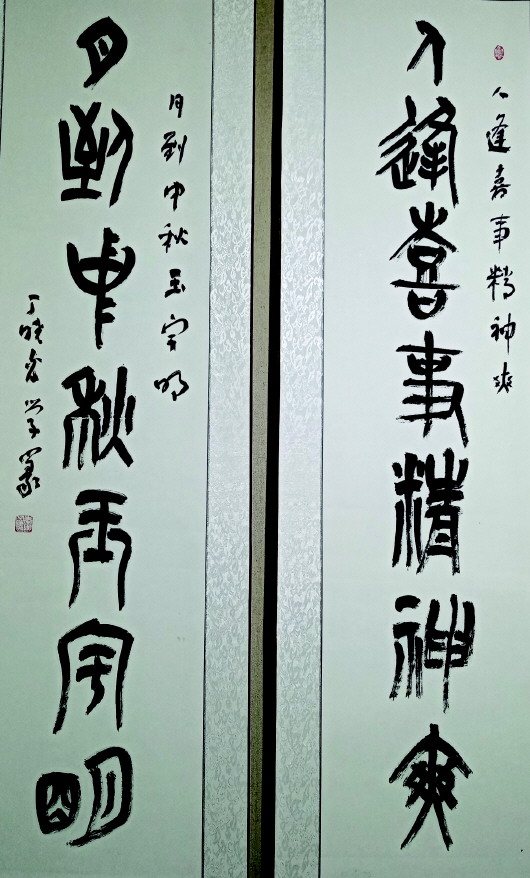 人逢喜事精神爽
人逢喜事精神爽
月到中秋玉宇明
月到中秋玉宇明
丁晓 学篆